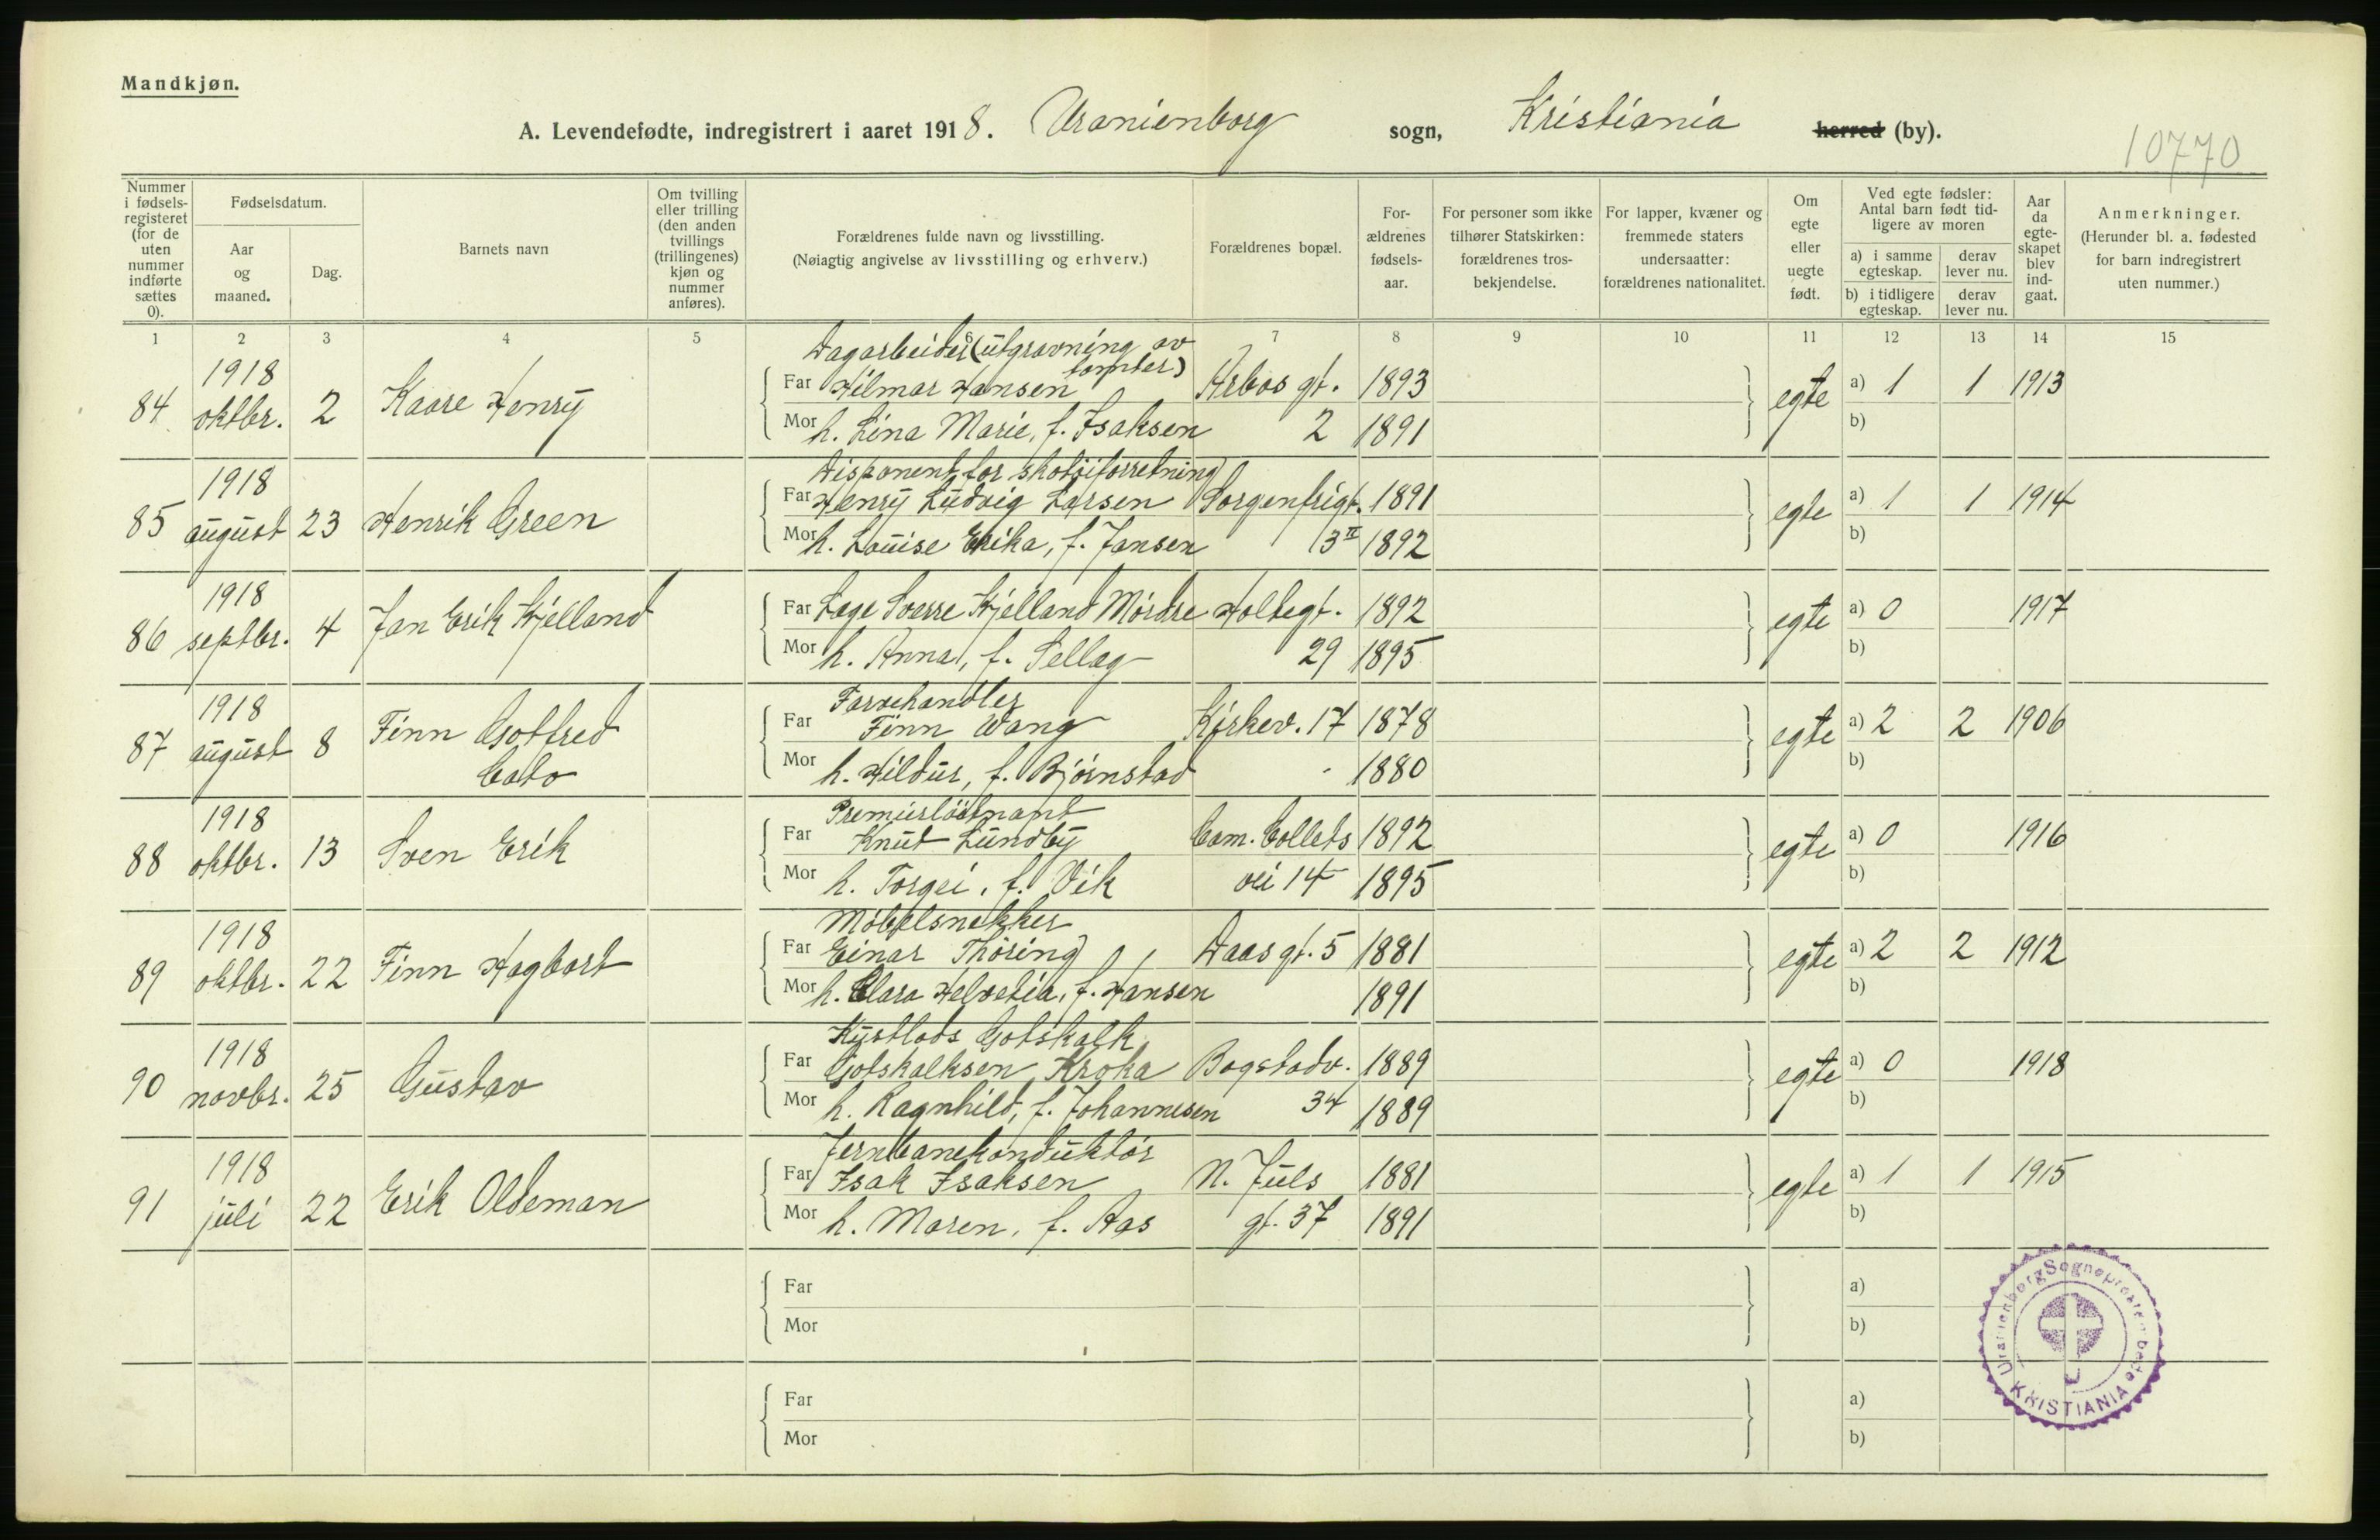 Mandkjøn.
A. Levendefødte, indregistrert i aaret 1918. Uranienborg sogn, Kristiania herred (by).
10770
Nummer i fødsels-registeret (for de uten nummer indførte sættes 0).
Fødselsdatum.
Aar og maaned.
Dag.
Barnets navn
Om tvilling eller trilling (den anden tvillings (trillingenes) kjøn og nummer anføres).
Forældrenes fulde navn og livsstilling.
(Nøiagtig angivelse av livsstilling og erhverv.)
Forældrenes bopæl.
For-ældrenes fødsels-aar.
For personer som ikke tilhører Statskirken: forældrenes tros-bekjendelse.
For lapper, kvæner og fremmede staters undersaatter: forældrenes nationalitet.
Om egte eller uegte født.
Ved egte fødsler: Antal barn født tid-ligere av moren
a) i samme egteskap.
derav lever nu.
b) i tidligere egteskap.
derav lever nu.
Aar da egte-skapet blev ind-gaat.
Anmerkninger.
(Herunder bl. a. fødested for barn indregistrert uten nummer.)
1 2 3 4 5 6 7 8 9 10 11 12 13 14 15
Dagarbeider (utgravning av tomter)
84 1918 oktbr. 2 Kaare Henry Far Hilmar Hansen Arbos gt. 1893 egte a) 1 1 1913
Mor h. Lina Marie, f. Isaksen 2 1891 b)
Disponent for skotøiforretning
85 1918 august 23 Henrik Green Far Henry Ludvig Larsen Sorgenfrigt. 1891 egte a) 1 1 1914
Mor h. Louise Erika, f. Jansen 3 II 1892 b)
86 1918 septbr. 4 Jan Erik Kjelland Far Læge Sverre Kjelland Mørdre Holtegt. 1892 egte a) 0 1917
Mor h. Anna, f. Sellæg 29 1895 b)
Farvehandler
87 1918 august 8 Finn Gotfred Cato Far Finn Wang Kirkev. 17 1878 egte a) 2 2 1906
Mor h. Hildur, f. Bjørnstad - 1880 b)
Premierløitnant
88 1918 oktbr. 13 Sven Erik Far Knut Lundby Cam. Collets 1892 egte a) 0 1916
Mor h. Torgei, f. Vik vei 14 1895 b)
Møbelsnekker
89 1918 oktbr. 22 Finn Hagbart Far Einar Thøring Daas gt. 5 1881 egte a) 2 2 1912
Mor h. Clara Helvetia, f. Hansen 1891 b)
Kystlods Gotskalk
90 1918 novbr. 25 Gustav Far Gotskalksen Kroka Bogstadv. 1889 egte a) 0 1918
Mor h. Ragnhild, f. Johannesen 34 1889 b)
Jernbanekonduktør
91 1918 juli 22 Erik Oldeman Far Isak Isaksen N. Juls 1881 egte a) 1 1 1915
Mor h. Maren, f. Aas gt. 37 1891 b)
Far a)
Mor b)
Far a)
Mor b)
Uranienborg Sogneprestembede
KRISTIANIA